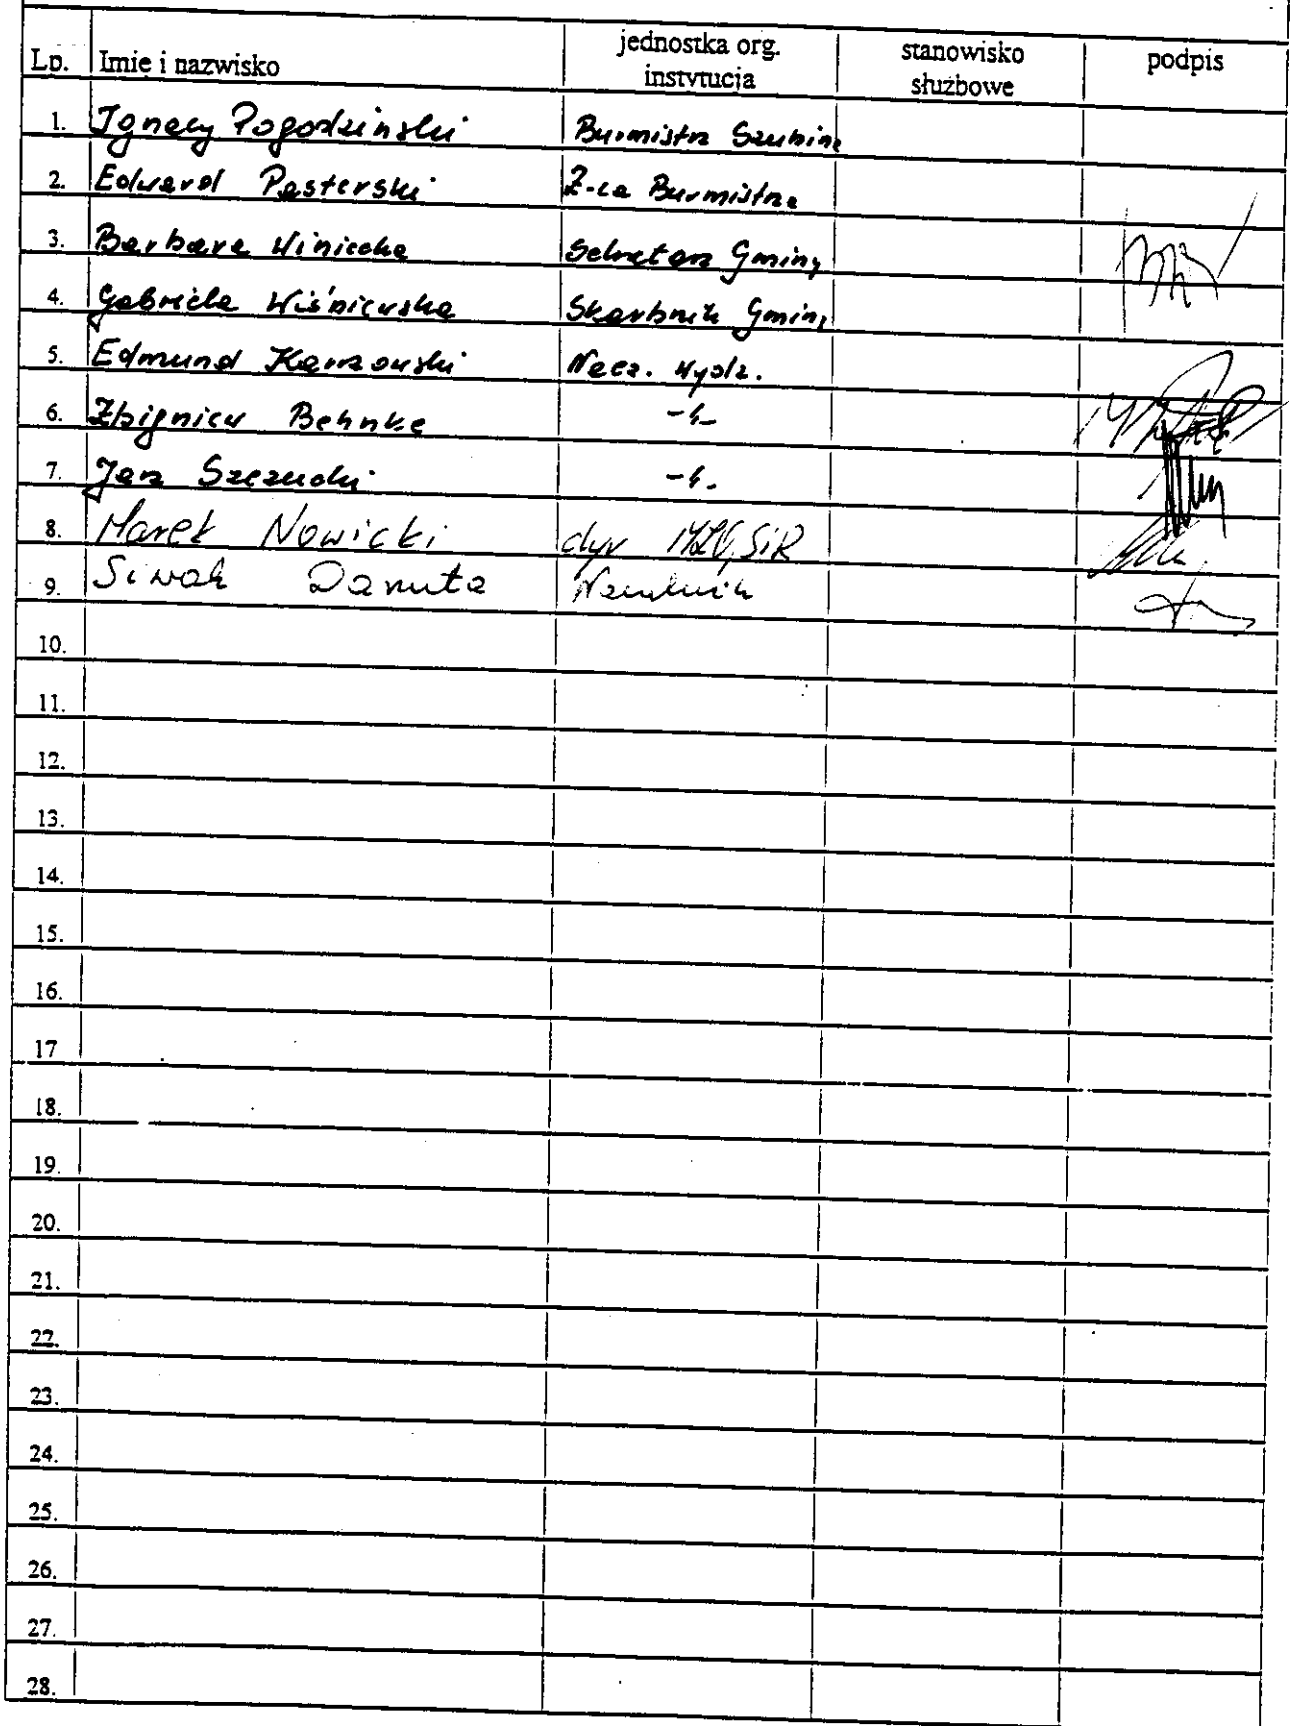 Lp. Imię i nazwisko jednostka org. instytucja stanowisko służbowe podpis
1. Ignacy Pogodziński Burmistrz Szubina
2. Edward Pasterski Z-ca Burmistrza
3. Barbara Winiecka Sekretarz Gminy
4. Gabriela Wiśniewska Skarbnik Gminy
5. Edmund Karzowski Nacz. Wydz.
6. Zbigniew Behnke -"-
7. Jerz Szczucki -"-
8. Marek Nowicki dyr
9. Siwak Danuta Naczelnik
10.
11.
12.
13.
14.
15.
16.
17
18.
19.
20.
21.
22.
23.
24.
25.
26.
27.
28.